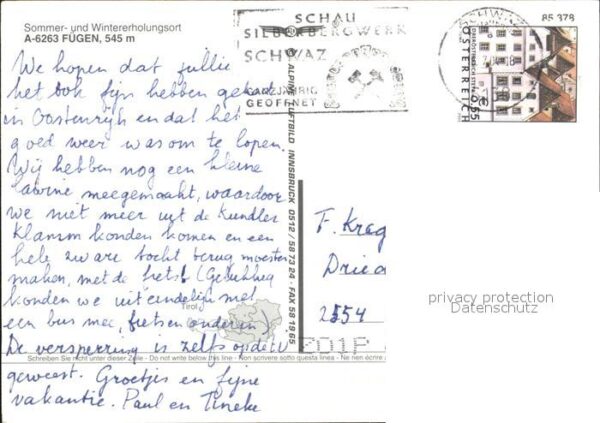 Sommer- und Wintererholungsort
A-6263 FÜGEN, 545 m
SCHAU
SILBERBERGWERK
SCHWAZ
GANZJÄHRIG
GEÖFFNET
85 378
ÖSTERREICH
0,55
We hopen dat jullie
het ook fijn hebben gehad
in Oostenrijk en dat het
goed weer was om te lopen.
Wij hebben nog een kleine
lawine meegemaakt, waardoor
we niet meer uit de Kundler
Klamm konden komen en een
hele zware tocht terug moesten
maken, met de fiets! (Gelukkig
konden we uiteindelijk met
een bus mee, fietsen onderin)
De versperring is zelfs op de TV
geweest. Groetjes en fijne
vakantie. Paul en Tineke
Tirol
Schreiben Sie nicht unter dieser Zeile - Do not write below this line - Non scrivere sotto questa linea - Ne rien écrire
ALPINE LUFTBILD INNSBRUCK 0512 / 58 73 24 - FAX 58 19 65
F. Krag
Driea
2554
privacy protection
Datenschutz